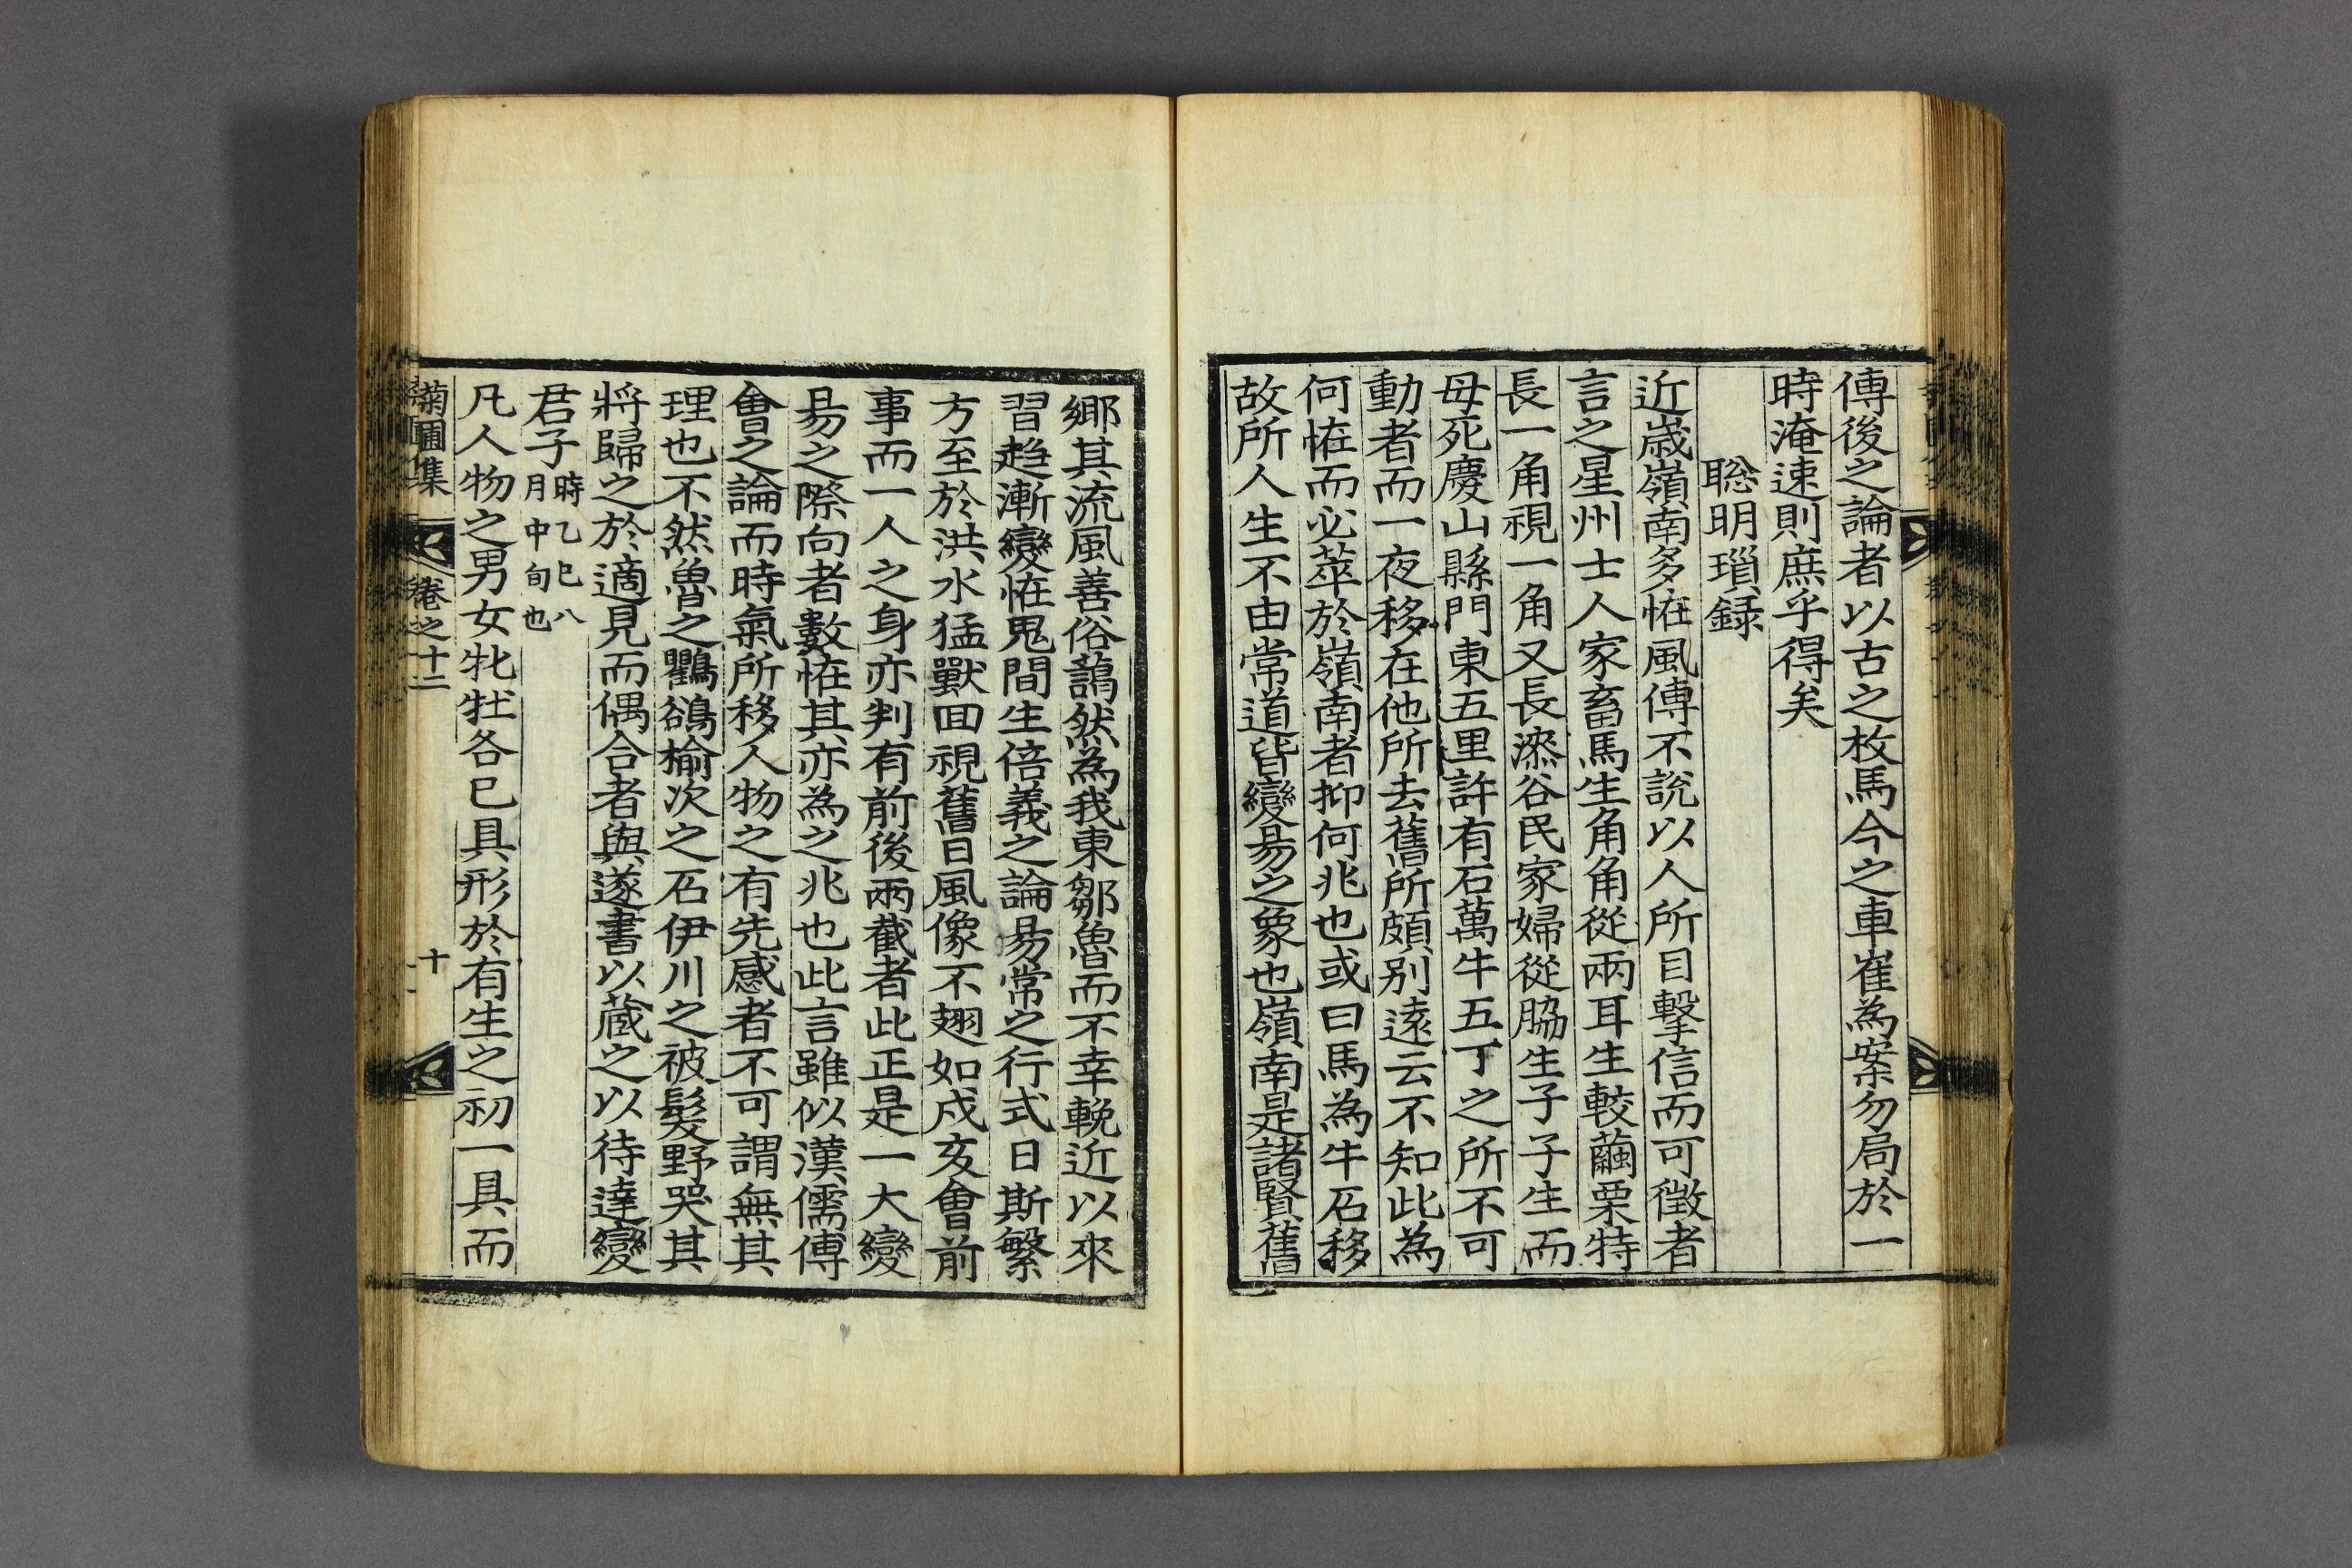 傳後之論者以古之枚馬今之車崔為案勿局於一
時淹速則庶乎得矣
聡明瑣録
近歳嶺南多恠風傳不說以人所目擊信而可徴者
言之星州士人家畜馬生角角從兩耳生較繭栗特
長一角視一角又長漆谷民家婦從脇生子子生而
母死慶山縣門東五里許有石萬牛五丁之所不可
動者而一夜移在他所去舊所頗别遠云不知此為
何恠而必萃於嶺南者抑何兆也或曰馬為牛石移
故所人生不由常道皆變易之象也嶺南是諸賢舊
鄉其流風善俗藹然為我東鄒魯而不幸輓近以來
習趍漸變恠鬼間生倍義之論易常之行式日斯繁
方至於洪水猛獸囬視舊日風像不翅如戍亥會前
事而一人之身亦判有前後兩截者此正是一大變
易之際向者數恠其亦為之兆也此言雖似漢儒傅
會之論而時氣所移人物之有先感者不可謂無其
理也不然魯之鸜鵒榆次之石伊川之被髮野哭其
將歸之於適見而偶合者與遂書以蔵之以待達變
君子時乙巳八月中旬也
凡人物之男女牝牡各已具形於有生之初一具而
菊圃集 卷之十二 十一